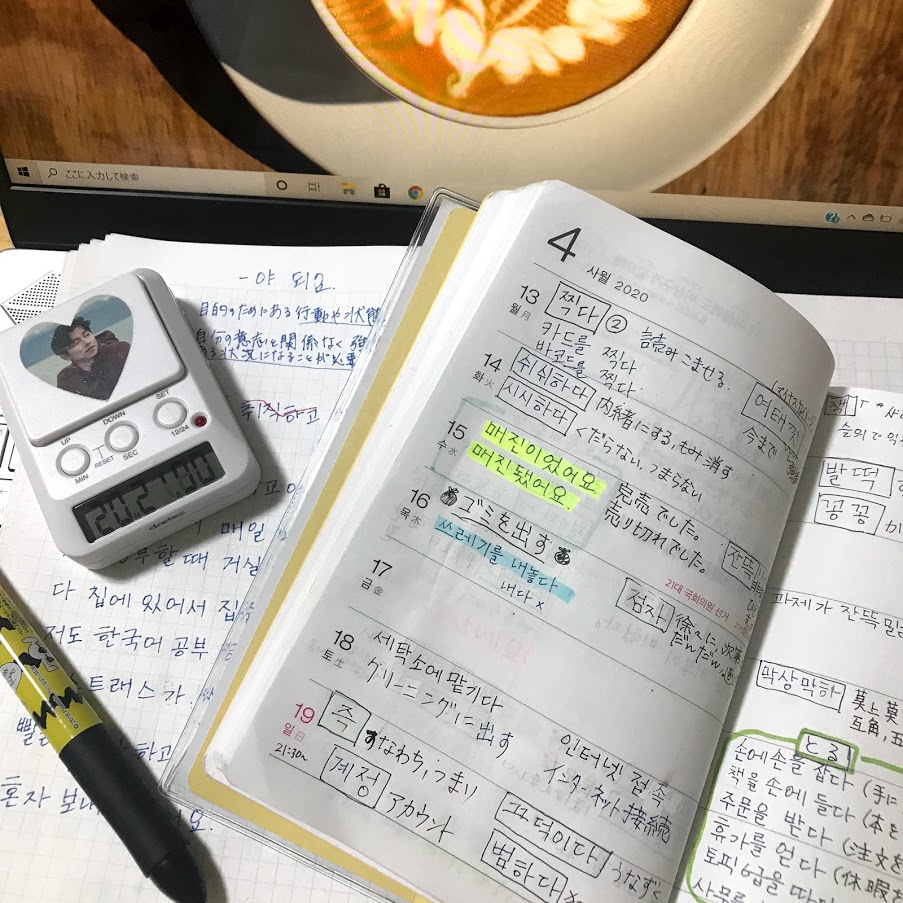 ここに入力して検索
-야 되요.
目的のためにある行動や状態
自分の意志と関係なく
ある状況になることが必要
취직하고
UP
DOWN
SET
MIN
RESET
SEC
12/24
20:21 00
dretec
매일
공부할 때 거실
다 집에 있어서
저도 한국어 공부
스트레스가
혼자
4
사월 2020
13
월月
찍다 ②
読みこませる.
카드를 찍다
바코드를 찍다.
여태껏
今まで
14
화火
쉬쉬하다
内緒にする,もみ消す
시시하다
くだらない,つまらない
15
수水
매진이었어요.
매진됐어요.
完売でした。
売り切れでした。
16
목木
ゴミを出す
쓰레기를 내놓다
내다 x
잔뜩
17
금金
21대 국회의원 선거
점차
徐々に,次第
だんだん
18
토土
세탁소에 맡기다
クリーニングに出す
19
일日
21:30~
즉
すなわち,つまり
인터넷 접속
インターネット接続
계정
アカウント
끄덕이다
うなずく
범하다
발딱
꽁꽁
과제가 잔뜩
막상막하
莫上莫
互角,五
とる
손에 손을 잡다 (手に
책을 손에 들다 (本を
주문을 받다 (注文を
휴가를 얻다 (休暇を
토픽 6급을 따다